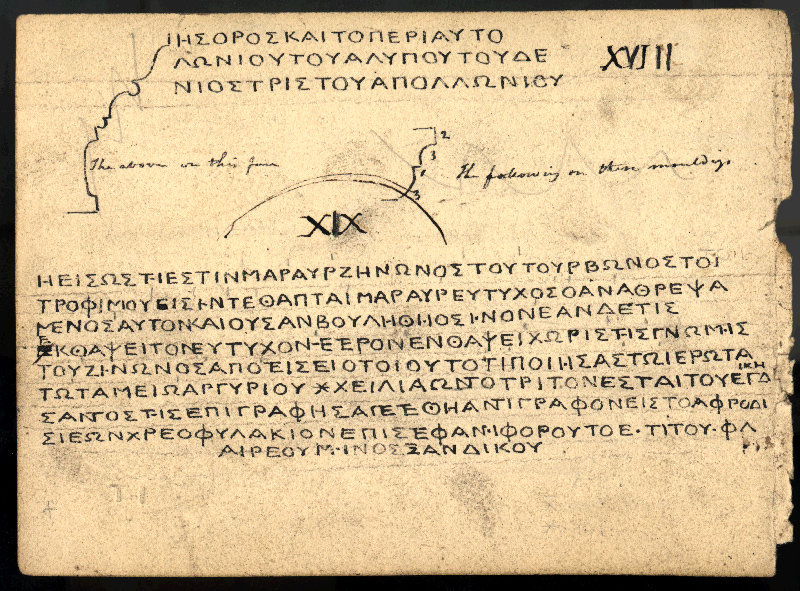 ΙΗΣΟΡΟΣΚΑΙΤΟΠΕΡΙΑΥΤΟ
ΛΩΝΙΟΥΤΟΥΑΛΥΠΟΥΤΟΥΔΕ
ΝΙΟΣΤΡΙΣΤΟΥΑΠΟΛΛΩΝΙΟΥ
XVIII
2
3
3
The above on this face
The following on these mouldings
XIX
ΗΕΙΣΩΣΤ·ΙΕΣΤΙΝΜΑΡΑΥΡΖΗΝΩΝΟΣΤΟΥΤΟΥΡΒΩΝΟΣΤΟΙ
ΤΡΟΦΙΜΟΥΕΙΣ·ΝΤΕΘΑΠΤΑΙΜΑΡΑΥΡΕΥΤΥΧΟΣΟΑΝΑΘΡΕΨΑ
ΜΕΝΟΣΑΥΤΟΝΚΑΙΟΥΣΑΝΒΟΥΛΗΘΗΙΟΣ·ΝΟΝΕΑΝΔΕΤΙΣ
ΕΚΘΑΨΕΙΤΟΝΕΥΤΥΧΟΝ·ΕΤΕΡΟΝΕΝΘΑΨΕΙΧΩΡΙΣΤ·ΙΣΓΝΩΜ·ΙΣ
ΤΟΥΖ·ΙΝΩΝΟΣΑΠΟΤΕΙΣΕΙΟΤΟΙΟΥΤΟΤΙΠΟΙΗΣΑΣΤΩΙΕΡΩΤΑ
ΤΩΤΑΜΕΙΩΑΡΓΥΡΙΟΥ Χ ΧΕΙΛΙΑΩΝΤΟΤΡΙΤΟΝΕΣΤΑΙΤΟΥΕΓΔΙΚΗ
ΣΑΝΤΟΣΤ·ΙΣΕΠΙΓΡΑΦΗΣΑΠΕΤΕΘΗΑΝΤΙΓΡΑΦΟΝΕΙΣΤΟΑΦΡΟΔΙ
ΣΙΕΩΝΧΡΕΟΦΥΛΑΚΙΟΝΕΠΙΣΕΦΑΝ·ΙΦΟΡΟΥΤΟΕ·ΤΙΤΟΥ·ΦΛ
ΑΙΡΕΟΥΜ·ΙΝΟΣΞΑΝΔΙΚΟΥ